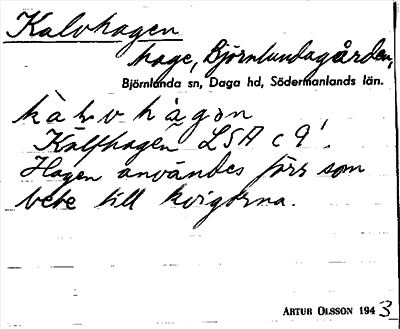 Kalvhagen
hage, Björnlundagården,
Björnlunda sn, Daga hd, Södermanlands län.
kàlvhàgən
Kalfhagen LSA c 9!
Hagen användes förr som
bete till kvigorna.
ARTUR OLSSON 1943